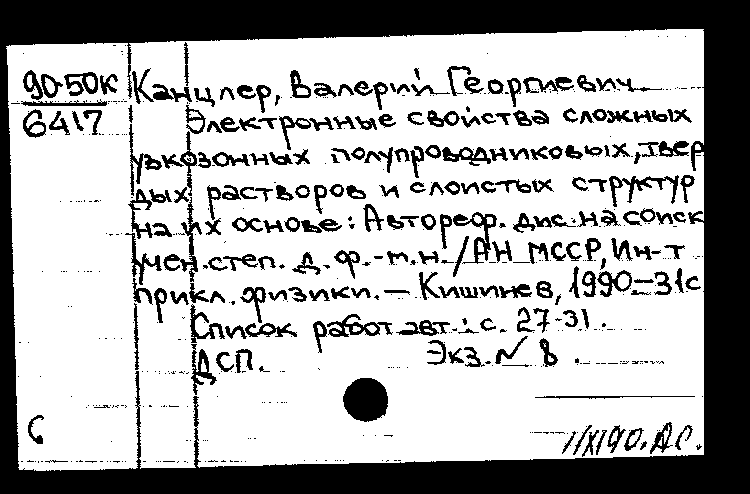 90-50к Канцлер, Валерий Георгиевич.
6417 Электронные свойства сложных
узкозонных полупроводниковых, твер
дых растворов и слоистых структур
на их основе: Автореф. дис. на соиск
учен. степ. д. ф.-м.н. / АН МССР, Ин-т
прикл. физики. — Кишинев, 1990.—31с
Список работ авт.: с. 27-31.
ДСП. Экз. № 8.
6
1/XI90.